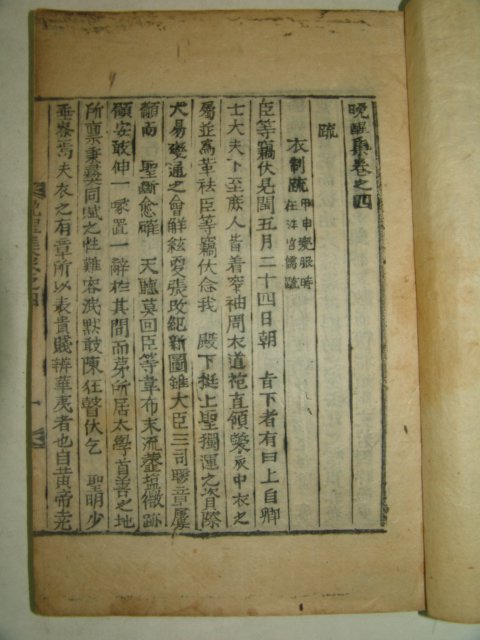 晩醒集卷之四
疏
衣制疏 甲申變服時 在泮宮齋疏
臣等竊伏見閏五月二十四日朝 旨下者有曰上自卿
士大夫下至庶人皆着窄袖周衣道袍直領䙆衣中衣之
屬並爲革祛臣等竊伏念我 殿下挺上聖獨運之資際
大易變通之會解絃更張改紀新圖雖大臣三司聯章屢
籲而 聖斷愈確 天聽莫回臣等韋布末流虀塩微跡
顧安敢伸一喙置一辭於其間而第所居太學首善之地
所禀秉彛同賦之性難容泯默敢陳狂瞽伏乞 聖明少
垂察焉夫衣之有章所以表貴賤辨華夷者也自黄帝堯
晩醒集卷之四 一